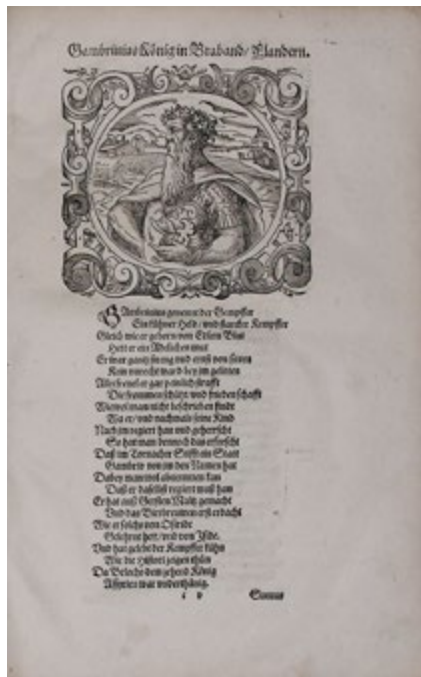 Gambrivius König in Braband/ Flandern.
Gambrivius genennt der Gempffer
Ein kühner Held/ und starcker Kempffer
Gleich wie er geborn von Edlem Blut
Hett er ein Adelichen mut
Er war gantz streng und ernst von sitten
Kein unrecht ward bey im gelitten
Alle frevel er gar peinlich strafft
Die frommen schützt und frieden schafft
Wiewol man nicht beschrieben findt
Wa er/ und nachmals seine Kind
Nach im regiert han und geherrscht
So hat man dennoch das erforscht
Daß im Tornacher Stifft ein Statt
Gambriv von im den Namen hat
Dabey man wol abnemmen kan
Daß er daselbst regiert muß han
Er hat auß Gersten Maltz gemacht
Und das Bierbreuwen erst erdacht
Wie er solchs von Osiride
Gelehrnt hett/ und von Iside.
Und hat gelebt der Kempffer kühn
Wie die Histori zeigen thun
Da Belochs der zehend König
Assyrien war underthänig.
Suevus